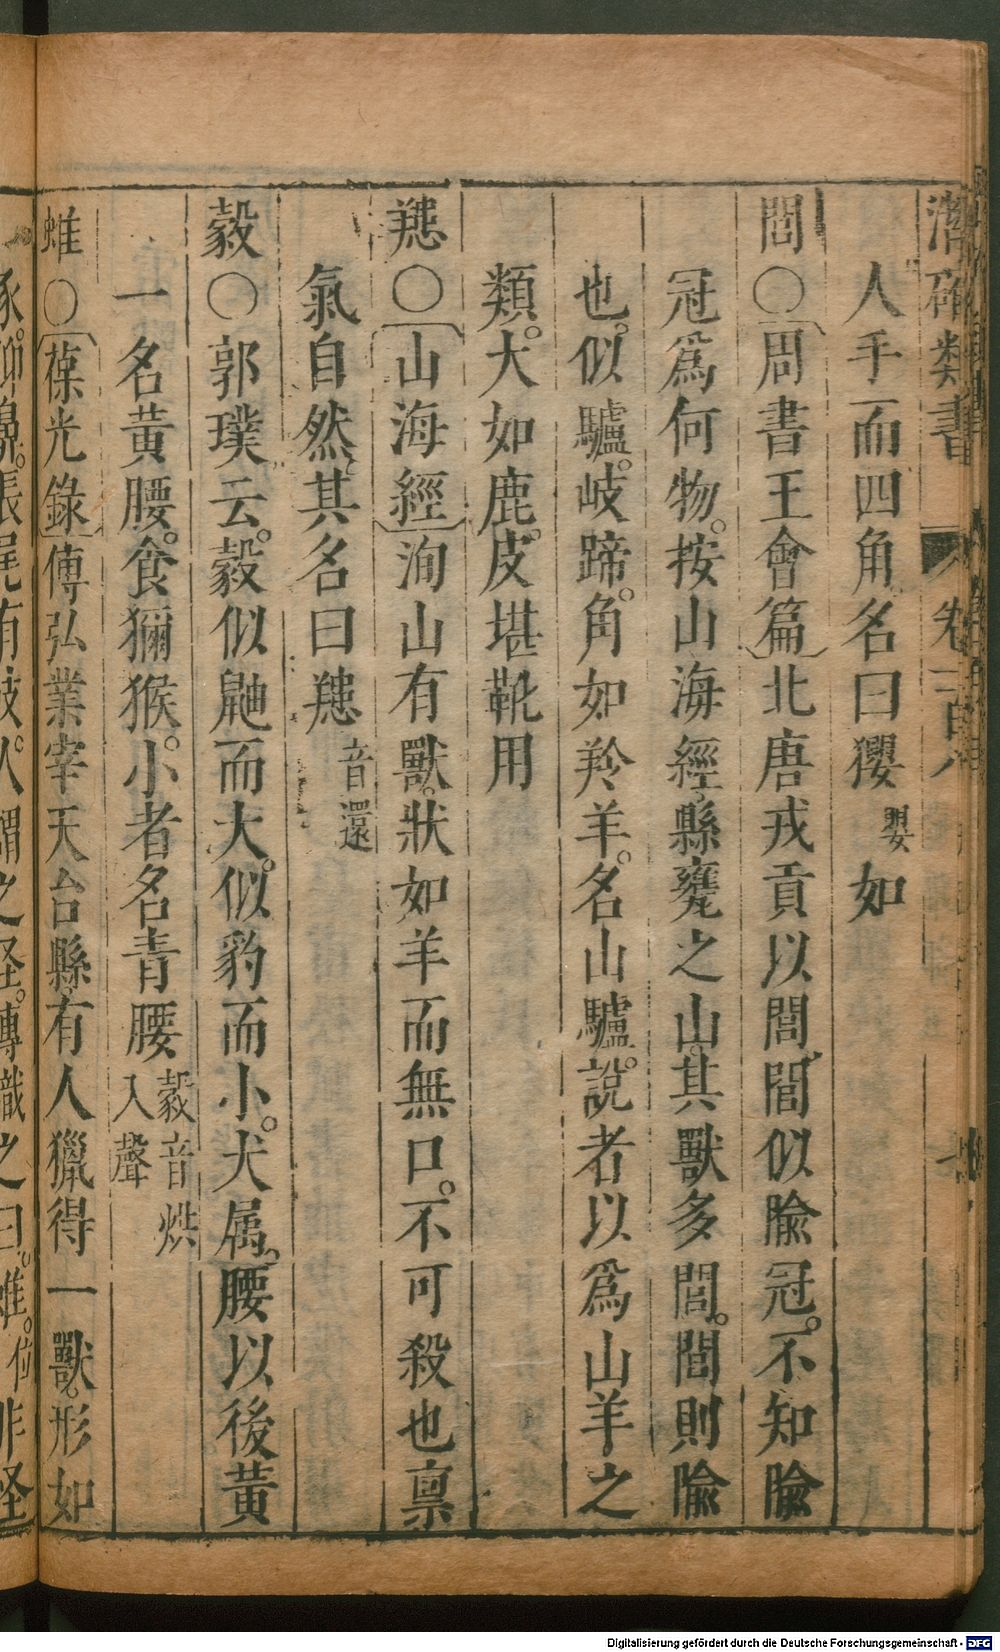 潛確類書 卷一百八
人手而四角名曰玃嬰如
閭〇周書王會篇北唐戎貢以閭閭似隃冠。不知隃
冠爲何物。按山海經縣甕之山其獸多閭。閭則隃
也。似驢。岐蹄。角如羚羊。名山驢。說者以爲山羊之
類。大如鹿。皮堪靴用
𦍩〇山海經洵山有獸。狀如羊而無口。不可殺也禀
氣自然。其名曰𦍩音還
豰〇郭璞云。豰似鼬而大。似豹而小。犬属。腰以後黄
一名黄腰。食獼猴。小者名青腰豰音烘入聲
蜼〇葆光錄傅弘業宰天台縣。有人獵得一獸。形如
豕。仰鼻。長尾有歧。人謂之怪。傅識之曰。蜼。 非怪
Digitalisierung gefördert durch die Deutsche Forschungsgemeinschaft - DFG